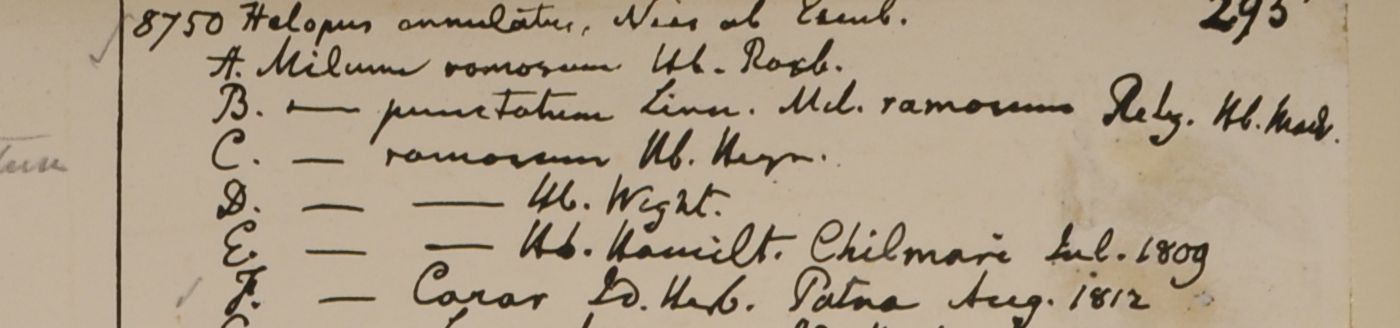 8750 Helopus annulatus, Nees ab Esenb. 295
A. Milium ramosum Hb. Roxb.
B. — punctatum Linn. Mil. ramosum Retz. Hb. Madr.
C. — ramosum Hb. Heyn.
D. — — Hb. Wight.
E. — — Hb. Hamilt. Chilmari Jul. 1809
F. — Coxar Id. Herb. Patna Aug. 1812